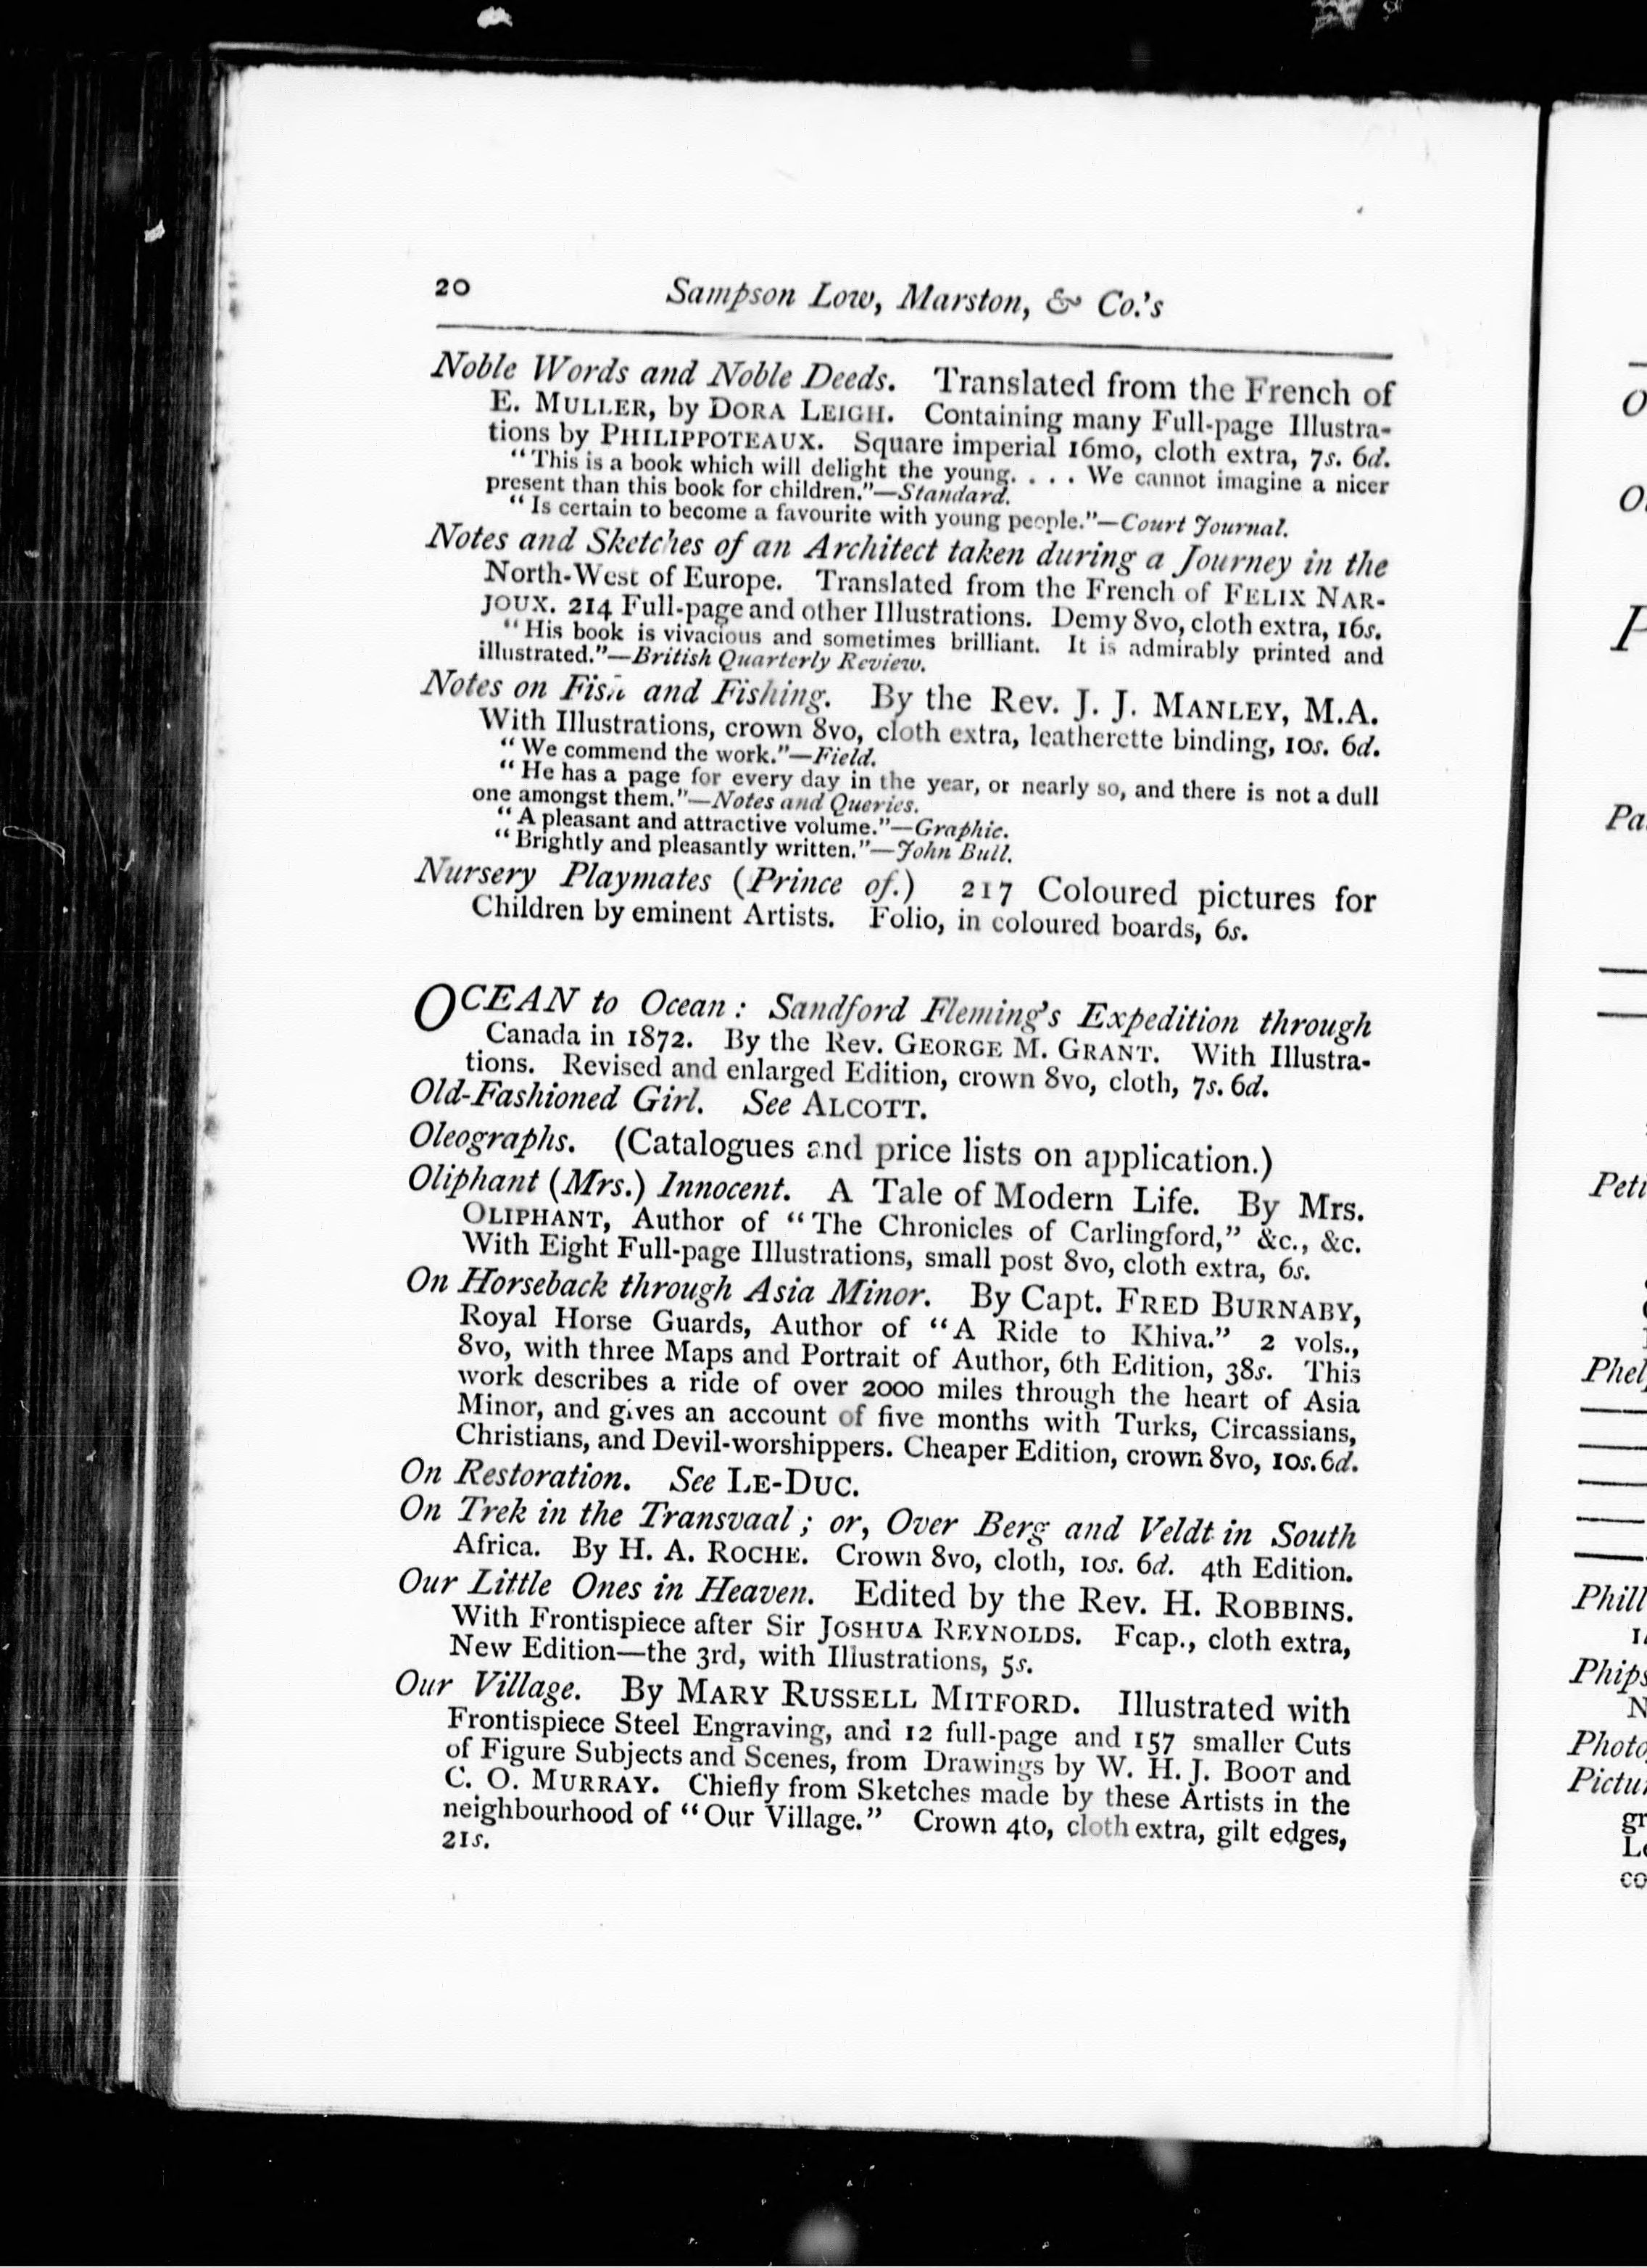 20 Sampson Low, Marston, & Co.'s
Noble Words and Noble Deeds. Translated from the French of
E. MULLER, by DORA LEIGH. Containing many Full-page Illustra-
tions by PHILIPPOTEAUX. Square imperial 16mo, cloth extra, 7s. 6d.
"This is a book which will delight the young. . . . We cannot imagine a nicer
present than this book for children."—Standard.
"Is certain to become a favourite with young people."—Court Journal.
Notes and Sketches of an Architect taken during a Journey in the
North-West of Europe. Translated from the French of FELIX NAR-
JOUX. 214 Full-page and other Illustrations. Demy 8vo, cloth extra, 16s.
"His book is vivacious and sometimes brilliant. It is admirably printed and
illustrated."—British Quarterly Review.
Notes on Fish and Fishing. By the Rev. J. J. MANLEY, M.A.
With Illustrations, crown 8vo, cloth extra, leatherette binding, 10s. 6d.
"We commend the work."—Field.
"He has a page for every day in the year, or nearly so, and there is not a dull
one amongst them."—Notes and Queries.
"A pleasant and attractive volume."—Graphic.
"Brightly and pleasantly written."—John Bull.
Nursery Playmates (Prince of.) 217 Coloured pictures for
Children by eminent Artists. Folio, in coloured boards, 6s.
OCEAN to Ocean: Sandford Fleming's Expedition through
Canada in 1872. By the Rev. GEORGE M. GRANT. With Illustra-
tions. Revised and enlarged Edition, crown 8vo, cloth, 7s. 6d.
Old-Fashioned Girl. See ALCOTT.
Oleographs. (Catalogues and price lists on application.)
Oliphant (Mrs.) Innocent. A Tale of Modern Life. By Mrs.
OLIPHANT, Author of "The Chronicles of Carlingford," &c., &c.
With Eight Full-page Illustrations, small post 8vo, cloth extra, 6s.
On Horseback through Asia Minor. By Capt. FRED BURNABY,
Royal Horse Guards, Author of "A Ride to Khiva." 2 vols.,
8vo, with three Maps and Portrait of Author, 6th Edition, 38s. This
work describes a ride of over 2000 miles through the heart of Asia
Minor, and gives an account of five months with Turks, Circassians,
Christians, and Devil-worshippers. Cheaper Edition, crown 8vo, 10s. 6d.
On Restoration. See LE-DUC.
On Trek in the Transvaal; or, Over Berg and Veldt in South
Africa. By H. A. ROCHE. Crown 8vo, cloth, 10s. 6d. 4th Edition.
Our Little Ones in Heaven. Edited by the Rev. H. ROBBINS.
With Frontispiece after Sir JOSHUA REYNOLDS. Fcap., cloth extra,
New Edition—the 3rd, with Illustrations, 5s.
Our Village. By MARY RUSSELL MITFORD. Illustrated with
Frontispiece Steel Engraving, and 12 full-page and 157 smaller Cuts
of Figure Subjects and Scenes, from Drawings by W. H. J. BOOT and
C. O. MURRAY. Chiefly from Sketches made by these Artists in the
neighbourhood of "Our Village." Crown 4to, cloth extra, gilt edges,
21s.